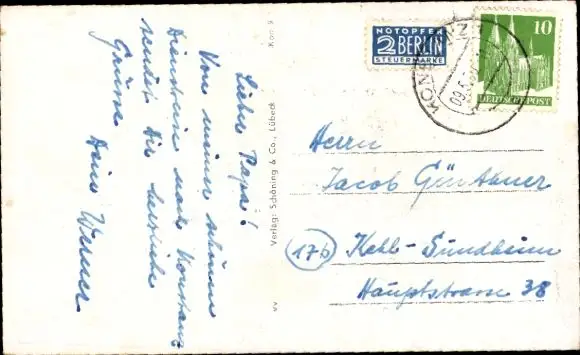 Lieber Papa!
Von meiner schönen
Dienstreise nach Konstanz
sendet Dir herzliche
Grüsse
Dein Werner
Verlag: Schöning & Co., Lübeck
NOTOPFER
2 BERLIN
STEUERMARKE
KONSTANZ
09.5.
10
DEUTSCHE POST
Herrn
Jacob Günthner
(17b) Kehl-Sundheim
Hauptstrasse 38